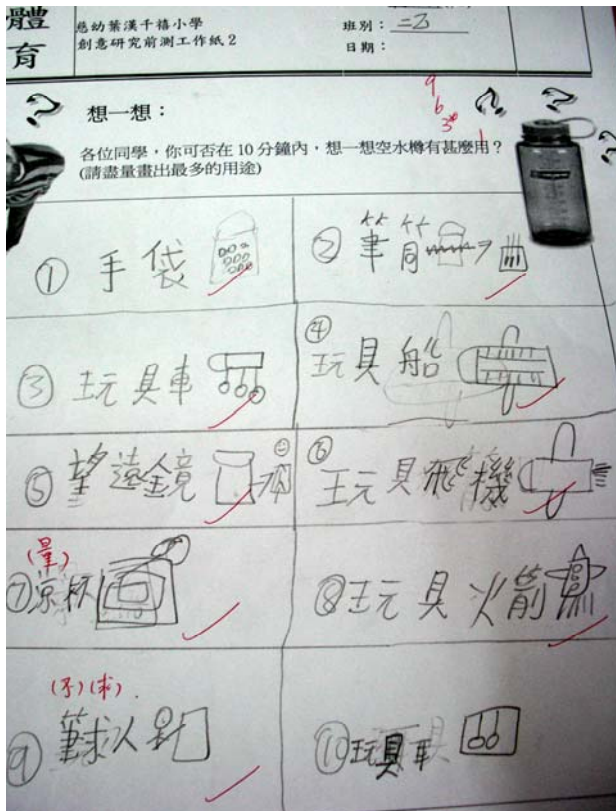 體育
慈幼葉漢千禧小學
創意研究前測工作紙 2
班別：二乙
日期：
9
6
3*
1
想一想：
各位同學，你可否在 10 分鐘內，想一想空水樽有甚麼用？
(請盡量畫出最多的用途)
① 手袋
② 筆筒
③ 玩具車
④ 玩具船
⑤ 望遠鏡
⑥ 玩具飛機
(量)
⑦ 涼杯
⑧ 玩具火箭
(予) (求)
⑨ 筆求人
⑩ 玩具車